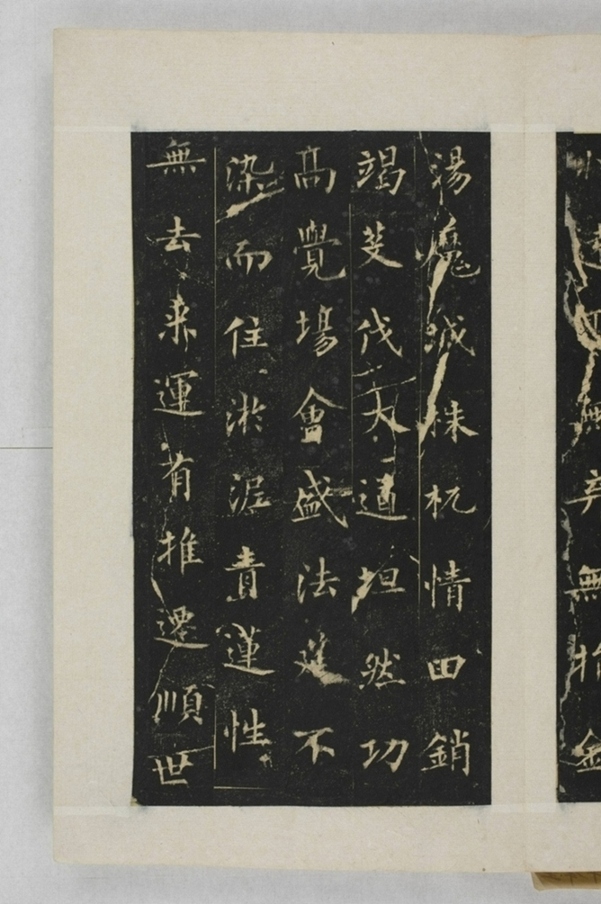 湯魔城株杌情田銷
竭芟伐大道坦然功
高覺場會盛法筵不
染而住淤泥青蓮性
無去来運有推遷順世